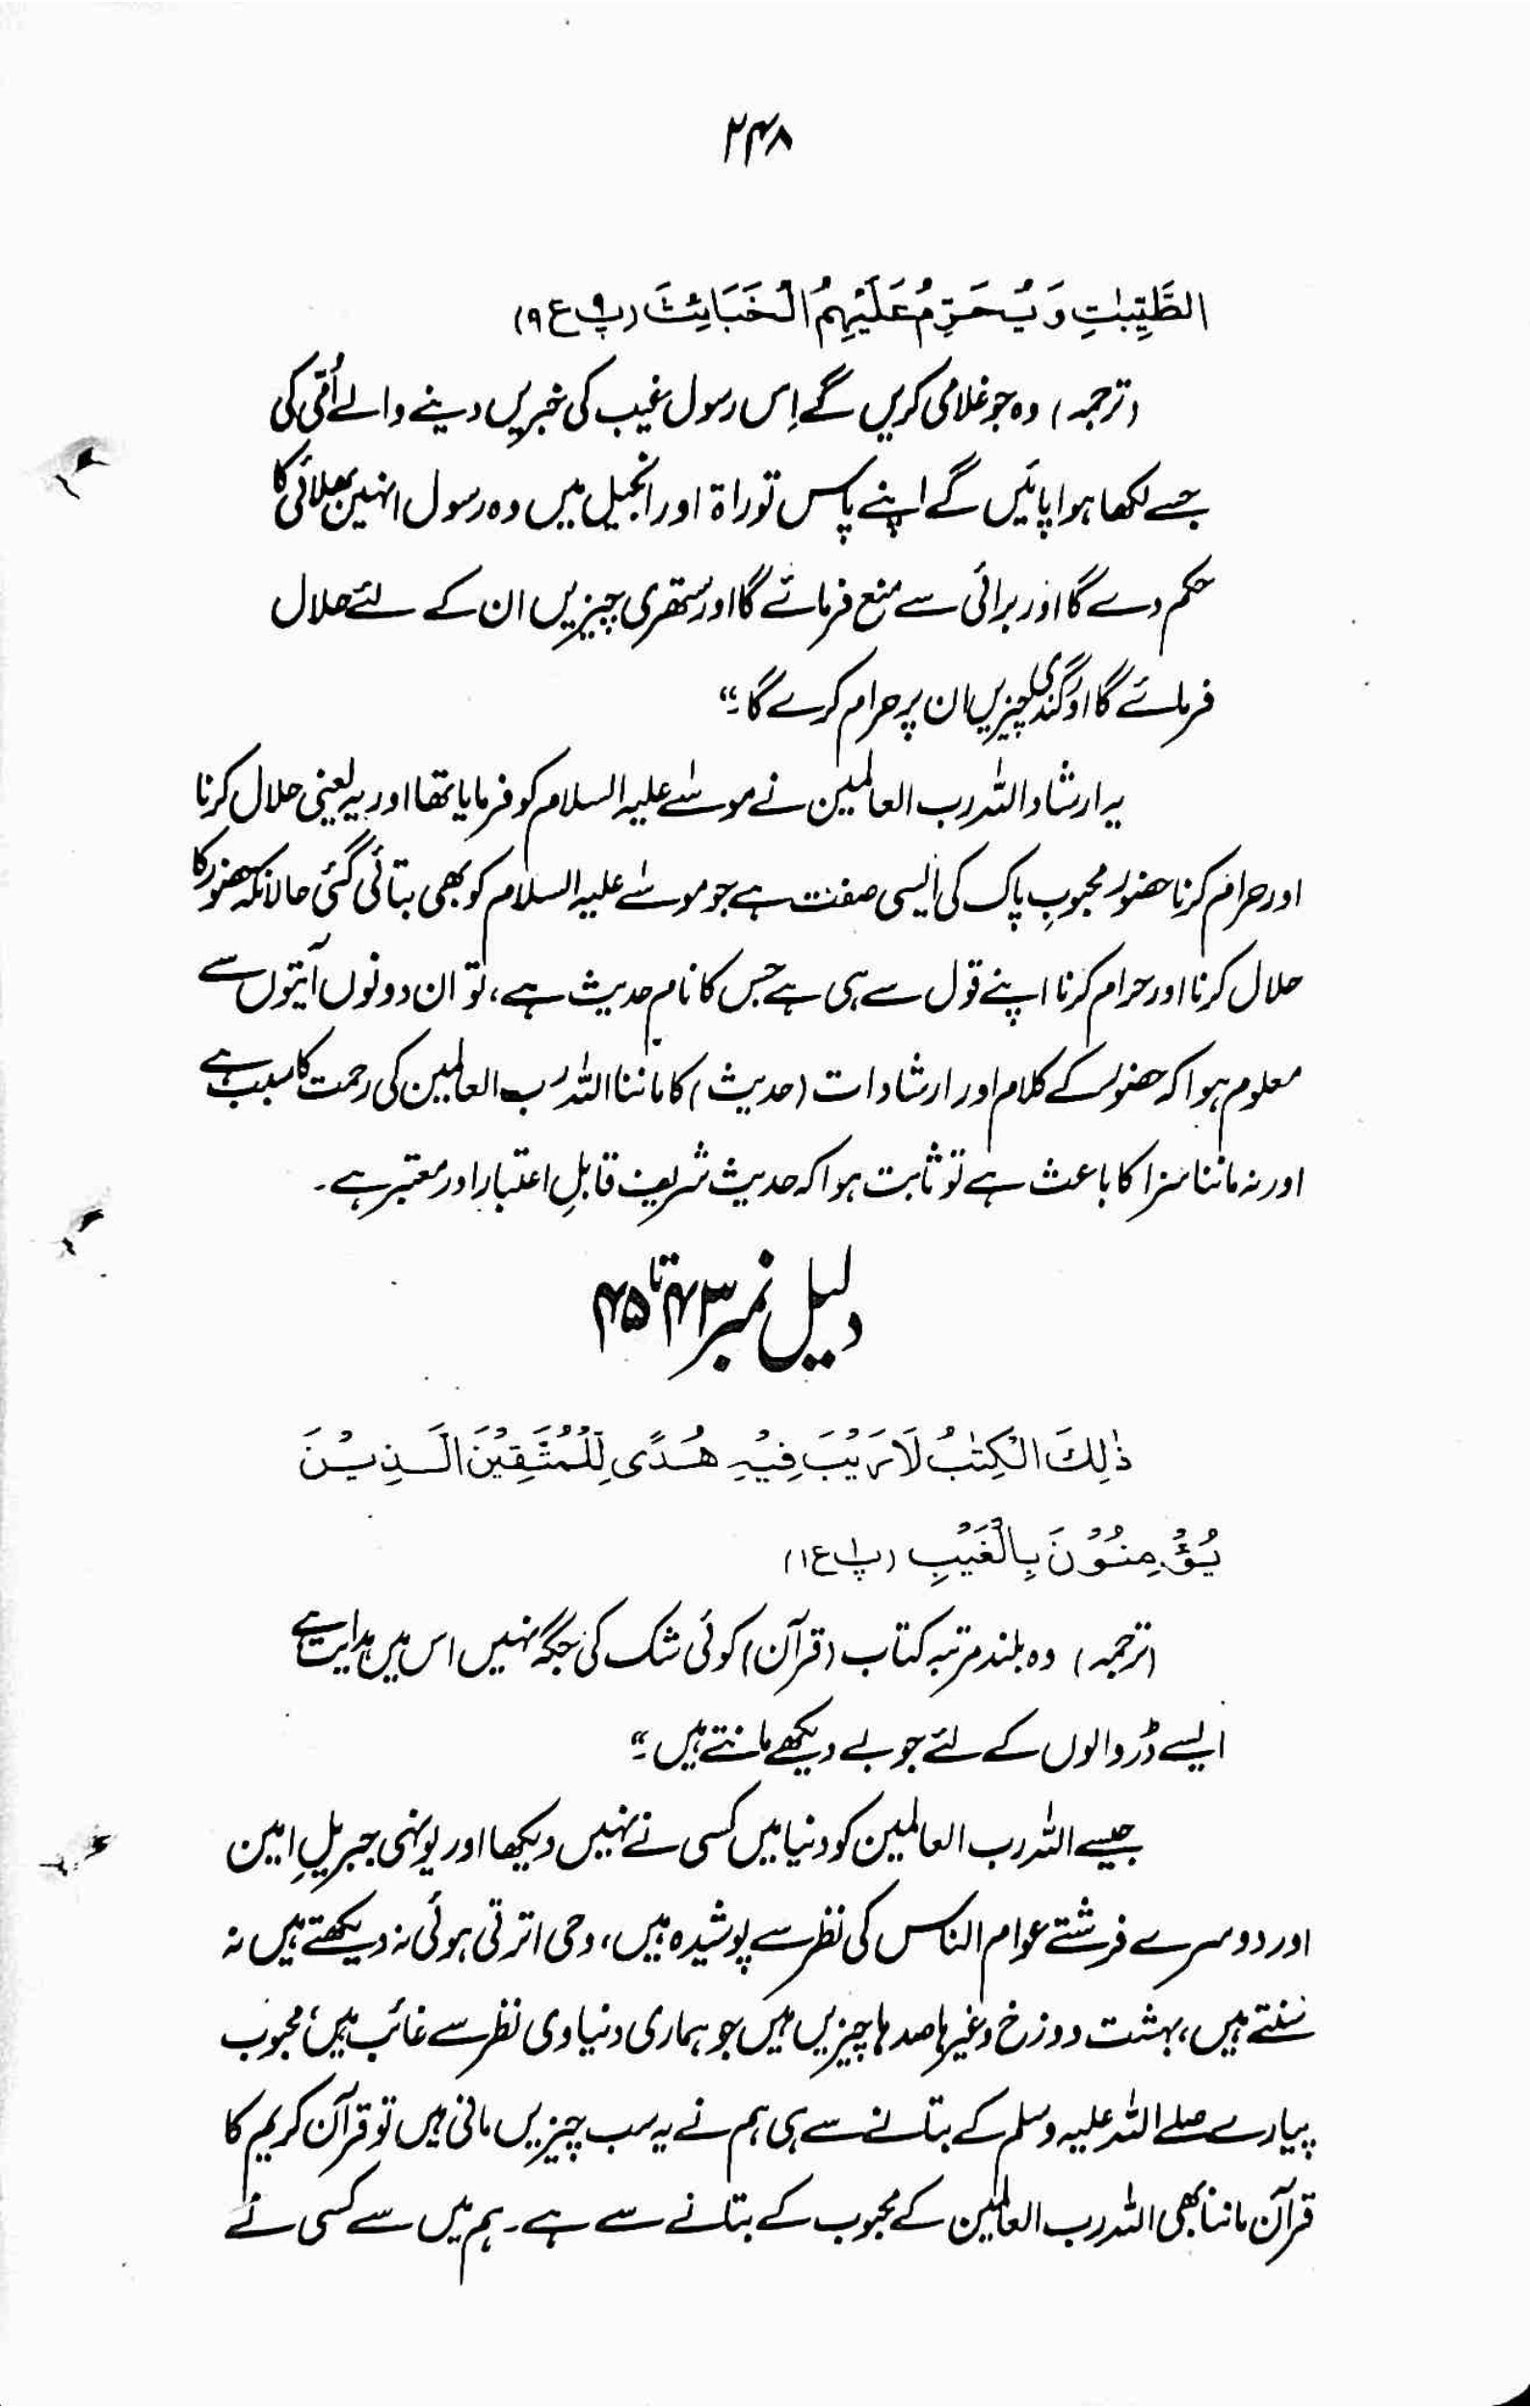 ۲۴۸
الطَّيِّبٰتِ وَيُحَرِّمُ عَلَيْهِمُ الْخَبَائِثَ (پ۹ ع۹)
(ترجمہ) وہ جو غلامی کریں گے اِس رسول غیب کی خبریں دینے والے اُمّی کی
جسے لکھا ہوا پائیں گے اپنے پاس توراۃ اور انجیل میں وہ رسول انہیں بھلائی کا
حکم دے گا اور برائی سے منع فرمائے گا اور ستھری چیزیں ان کے لئے حلال
فرمائے گا اور گندی چیزیں ان پر حرام کرے گا۔“
یہ ارشاد اللہ رب العالمین نے موسٰے علیہ السلام کو فرمایا تھا اور یہ یعنی حلال کرنا
اور حرام کرنا حضور محبوبِ پاک کی ایسی صفت ہے جو موسٰے علیہ السلام کو بھی بتائی گئی حالانکہ حضور کا
حلال کرنا اور حرام کرنا اپنے قول سے ہی ہے جس کا نام حدیث ہے، تو ان دونوں آیتوں سے
معلوم ہوا کہ حضور کے کلام اور ارشادات (حدیث) کا ماننا اللہ رب العالمین کی رحمت کا سبب ہے
اور نہ ماننا سزا کا باعث ہے تو ثابت ہوا کہ حدیث شریف قابلِ اعتبار اور معتبر ہے۔
دلیل نمبر ۴۳ تا ۴۵
ذٰلِكَ الْكِتٰبُ لَا رَيْبَ فِيْهِ هُدًى لِّلْمُتَّقِيْنَ الَّذِيْنَ
يُؤْمِنُوْنَ بِالْغَيْبِ (پ۱ ع۱)
(ترجمہ) وہ بلند مرتبہ کتاب (قرآن) کوئی شک کی جگہ نہیں اس میں ہدایت ہے
ایسے ڈر والوں کے لئے جو بے دیکھے مانتے ہیں۔“
جیسے اللہ رب العالمین کو دنیا میں کسی نے نہیں دیکھا اور یونہی جبریلِ امین
اور دوسرے فرشتے عوام الناس کی نظر سے پوشیدہ ہیں، وحی اترتی ہوئی نہ دیکھتے ہیں نہ
سنتے ہیں، بہشت دوزخ وغیرہا صدہا چیزیں ہیں جو ہماری دنیاوی نظر سے غائب ہیں، محبوب
پیارے صلے اللہ علیہ وسلم کے بتانے سے ہی ہم نے یہ سب چیزیں مانی ہیں تو قرآن کریم کا
قرآن ماننا بھی اللہ رب العالمین کے محبوب کے بتانے سے ہے۔ ہم میں سے کسی نے